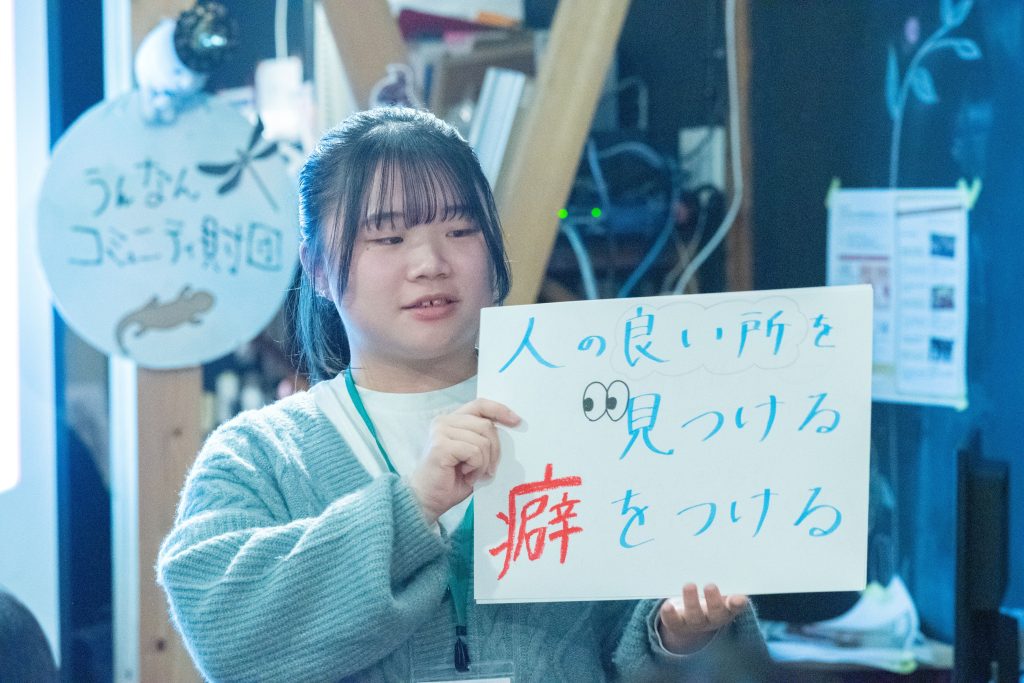 うんなん
コミュニティ財団
人の良い所を
見つける
癖をつける